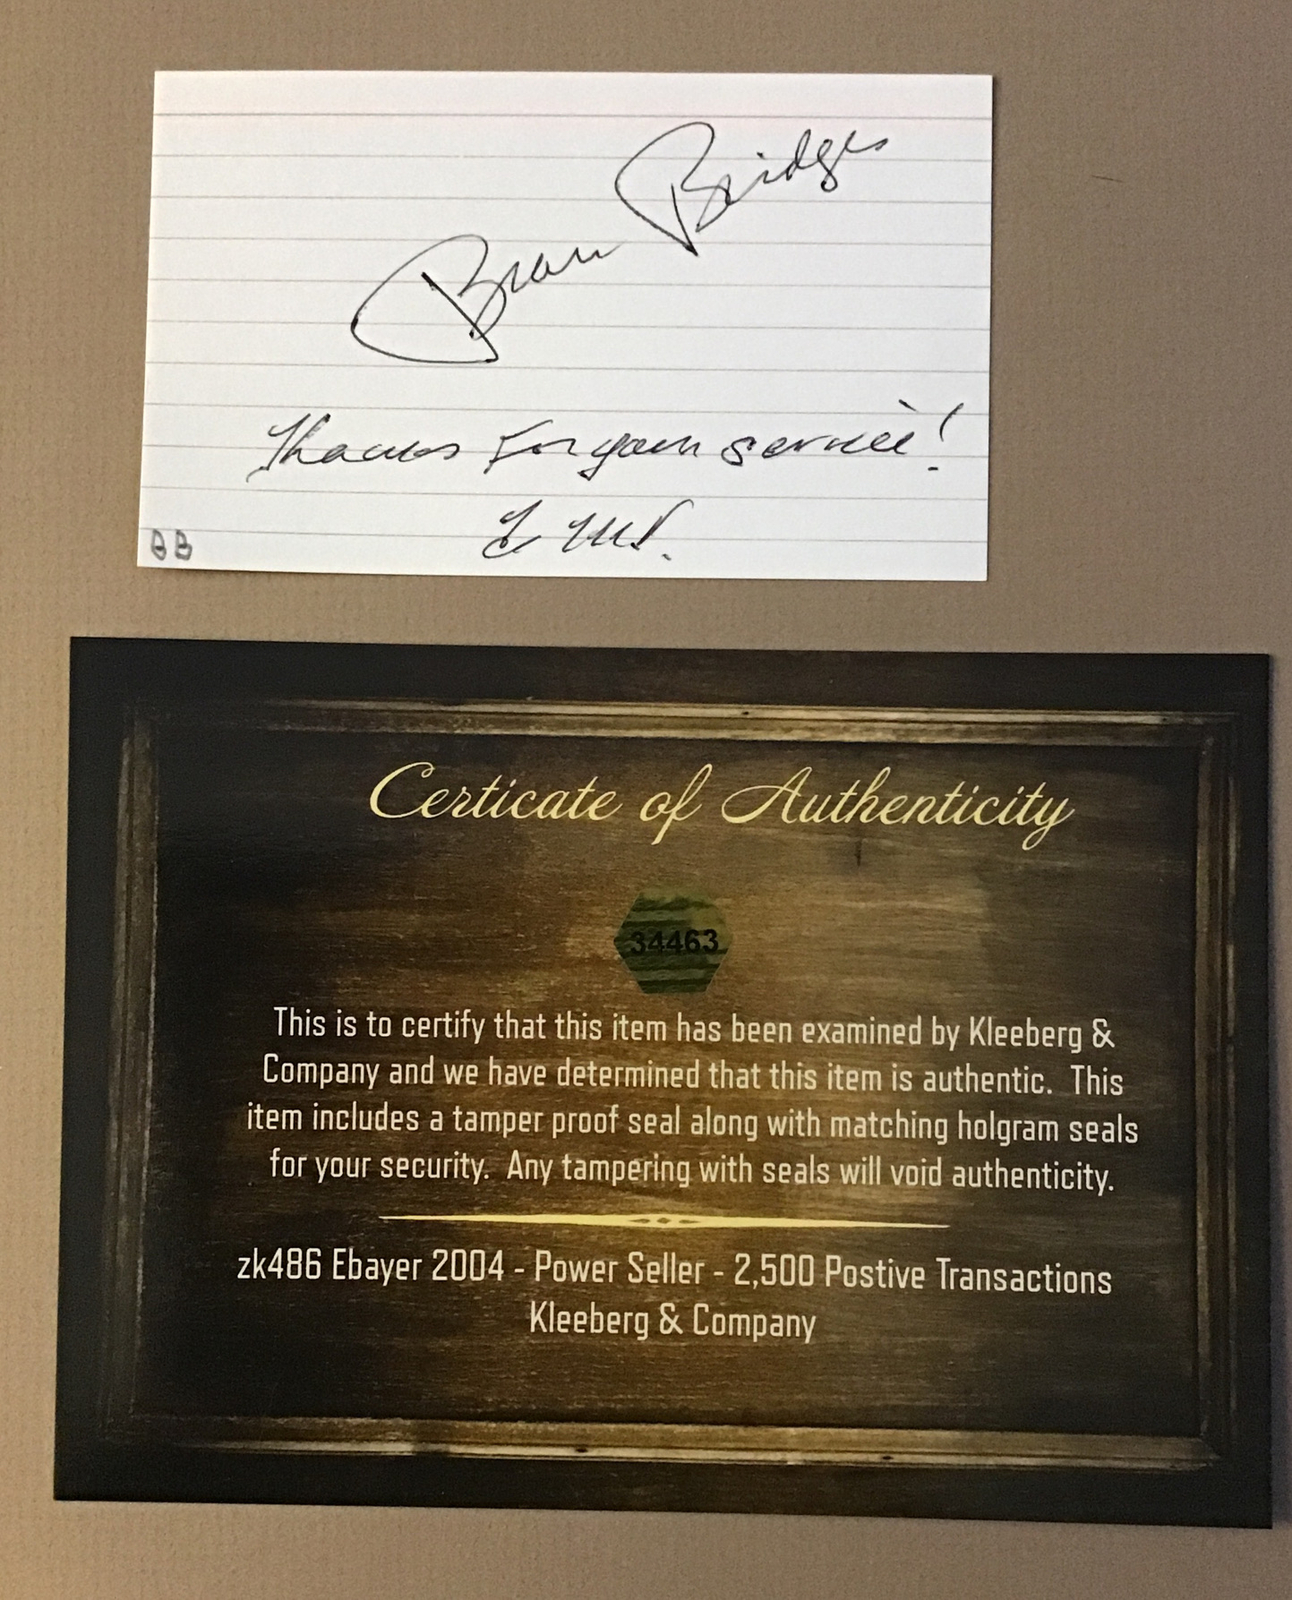 Beau Bridges
Thanks for your service!
BB
Certicate of Authenticity
34463
This is to certify that this item has been examined by Kleeberg &
Company and we have determined that this item is authentic. This
item includes a tamper proof seal along with matching holgram seals
for your security. Any tampering with seals will void authenticity.
zk486 Ebayer 2004 - Power Seller - 2,500 Postive Transactions
Kleeberg & Company